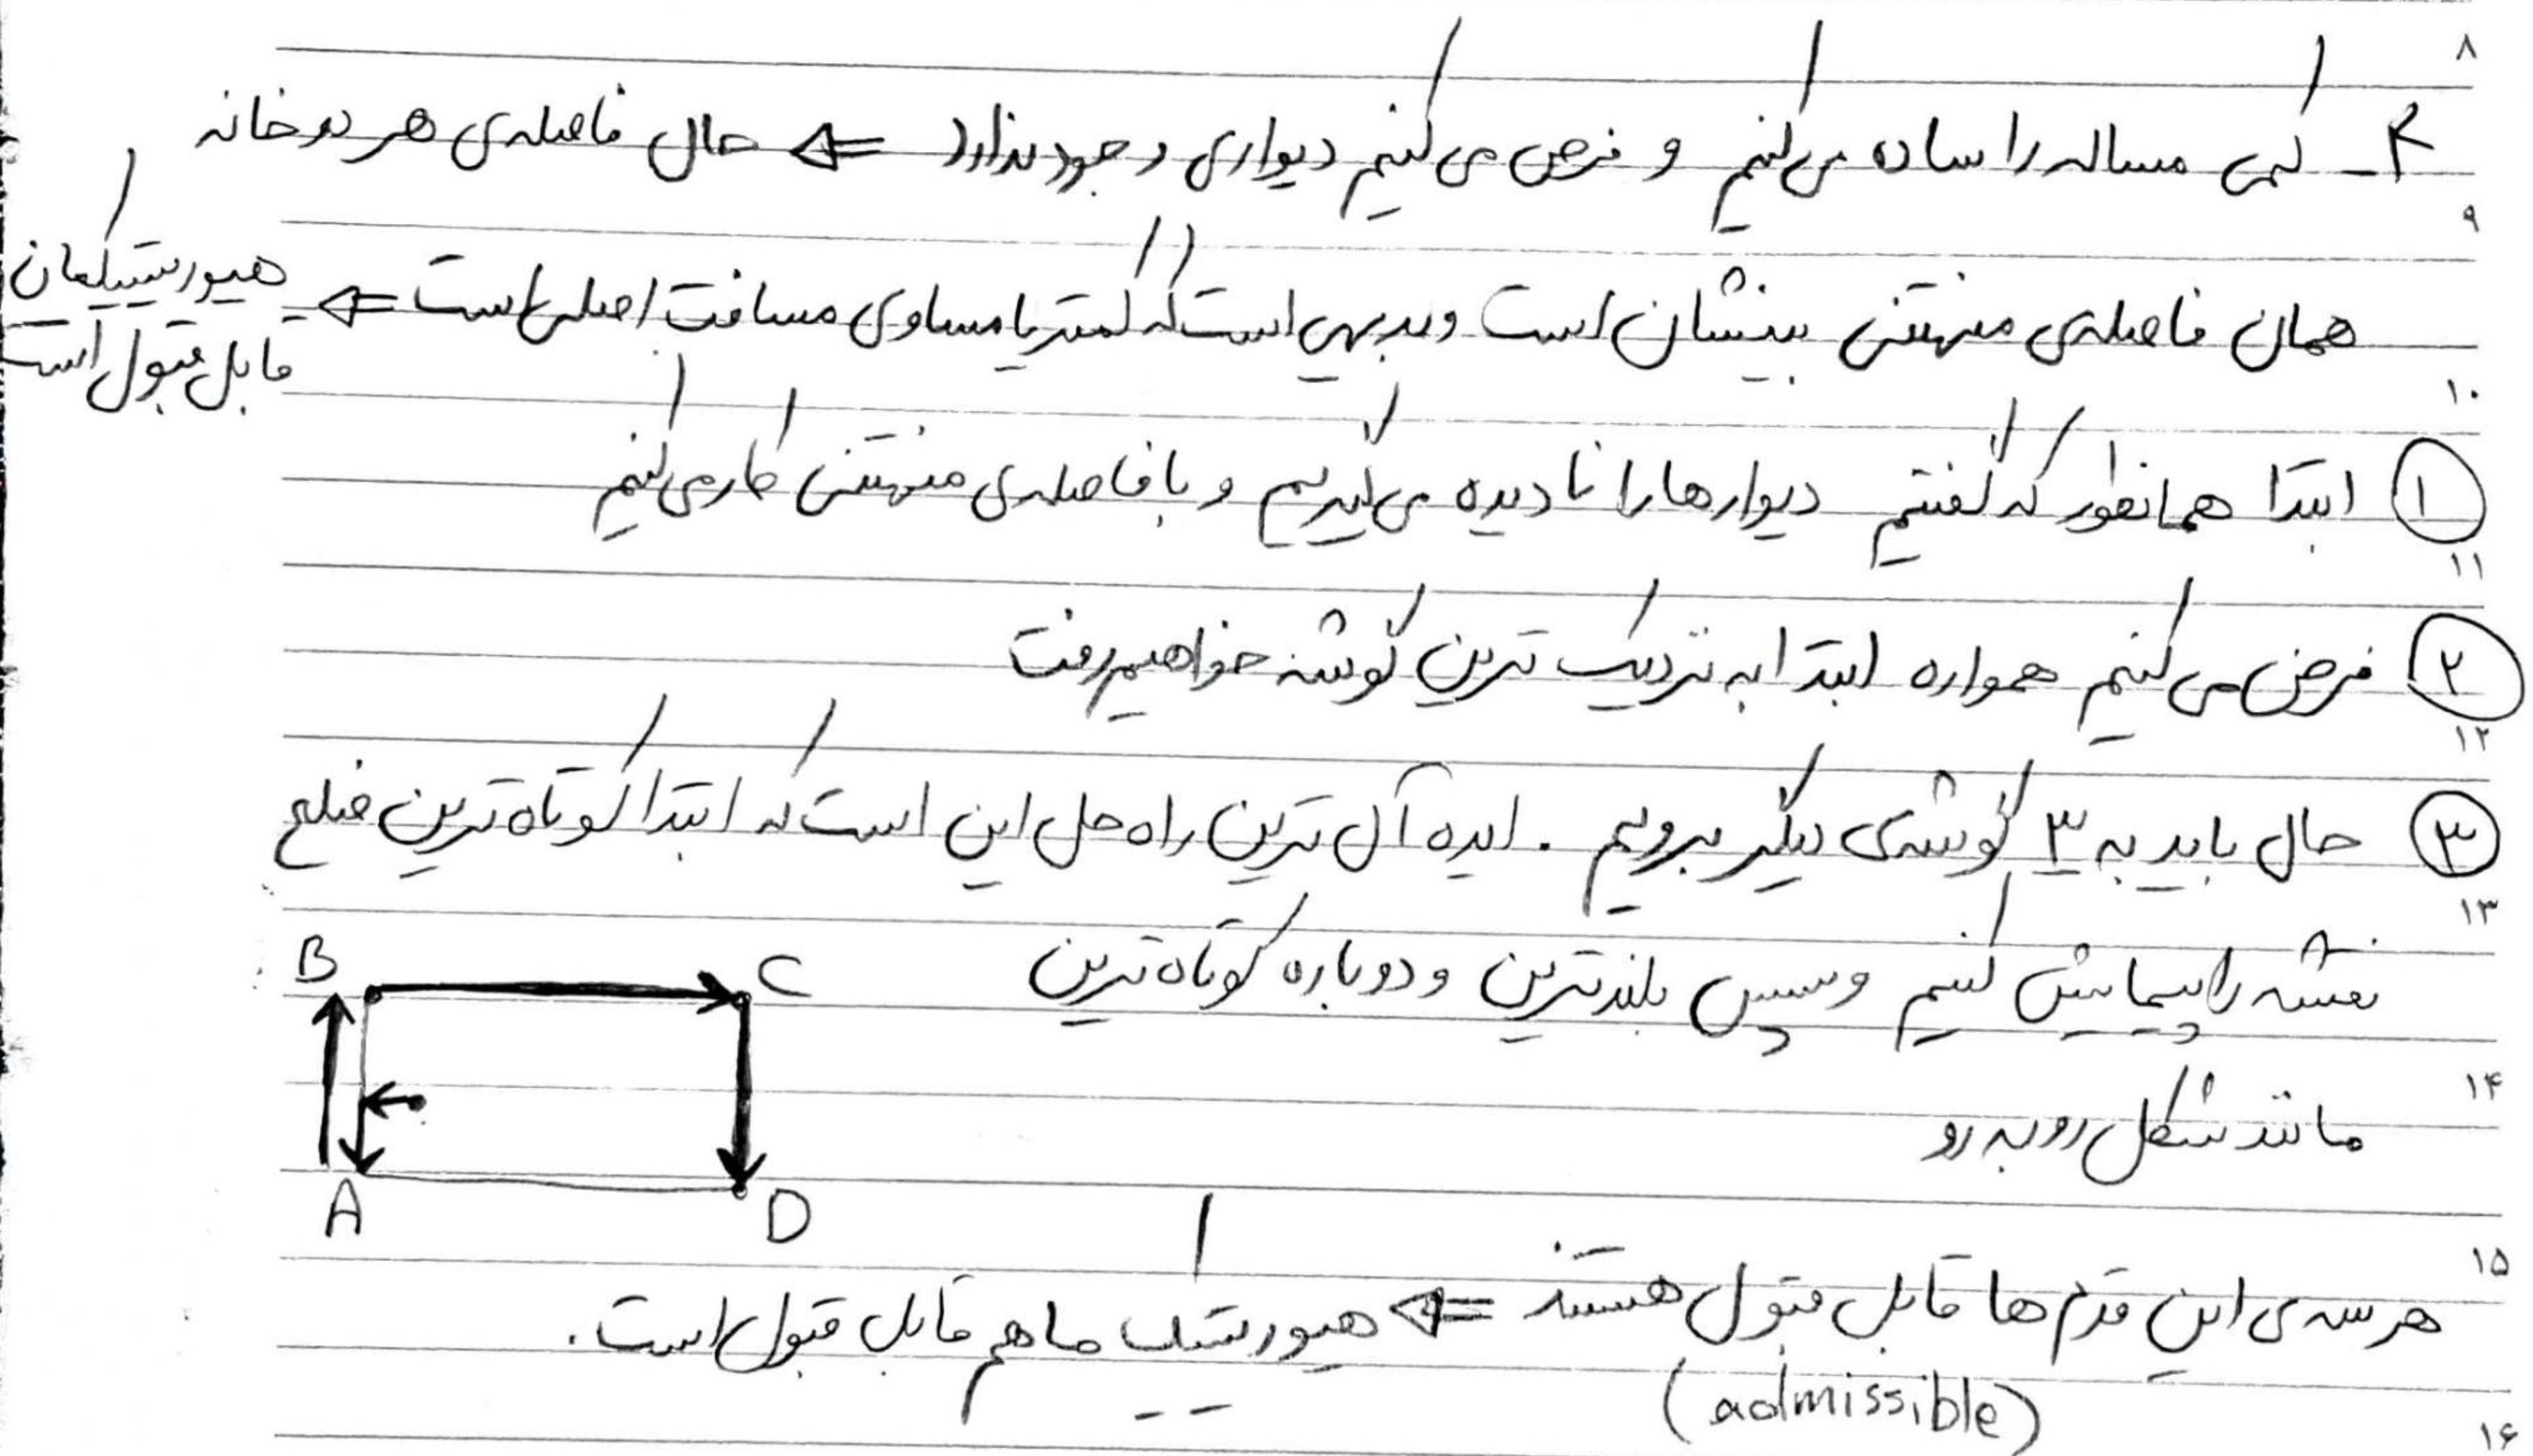 ۸
۴- کمی مساله را ساده می‌کنیم و فرض می‌کنیم دیواری وجود ندارد ⇐ حال فاصله‌ی هر دو خانه
۹
همان فاصله‌ی منهتنی بینشان است و بدیهی است که کمتر یا مساوی مسافت اصلی است ⇐ هیوریستیکمان
قابل قبول است
۱۰
۱ ابتدا همانطور که گفتیم دیوارها را نادیده می‌گیریم و با فاصله‌ی منهتنی کار می‌کنیم
۱۱
۲ فرض می‌کنیم همواره ابتدا به نزدیک ترین گوشه خواهیم رفت
۱۲
۳ حال باید به ۳ گوشه‌ی دیگر برویم . ایده آل ترین راه حل این است که ابتدا کوتاه ترین ضلع
۱۳
نقشه را پیمایش کنیم و سپس بلندترین و دوباره کوتاه ترین
B C
۱۴
مانند شکل رو به رو
A D
۱۵
هر سه‌ی این قدم ها قابل قبول هستند ⇐ هیوریستیک ما هم قابل قبول است.
(admissible)
۱۶